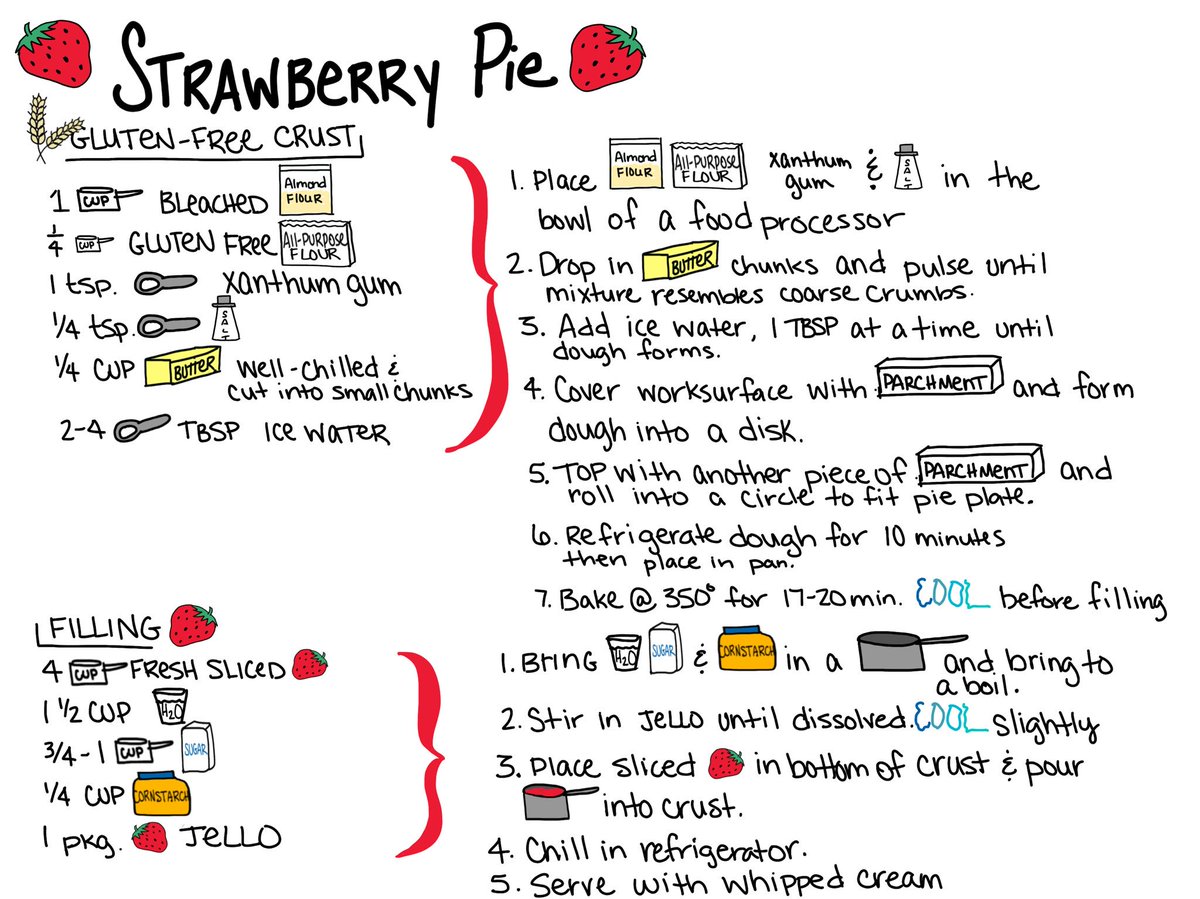 STRAWBERRY Pie
GLUTEN-FRee CRUST
1 CUP BLeacHeD Almond FLOUR
1/4 CUP GLUTEN FRee All-PURPOSE FLOUR
1 tsp. xanthum gum
1/4 tsp. SALT
1/4 CUP BUTTER Well-CHilled &
cut into small chunks
2-4 TBSP Ice WATER
1. Place Almond FLOUR All-PURPOSE FLOUR xanthum gum & SALT in the
bowl of a food processor
2. Drop in BUTTER chunks and pulse until
mixture resembles coarse crumbs.
3. Add ice water, 1 TBSP at a time until
dough forms.
4. Cover worksurface with PARCHMENT and form
dough into a disk.
5. TOP with another piece of PARCHMENT and
roll into a circle to fit pie plate.
6. Refrigerate dough for 10 minutes
then place in pan.
7. Bake @ 350° for 17-20 min. COOL before filling
FILLING
4 CUP FRESH SLICED
1 1/2 CUP H2O
3/4-1 CUP SUGAR
1/4 CUP CORNSTARCH
1 pkg. JELLO
1. Bring H2O SUGAR & CORNSTARCH in a and bring to
a boil.
2. Stir in JELLO until dissolved. COOL slightly
3. Place sliced in bottom of crust & pour
into crust.
4. Chill in refrigerator.
5. Serve with whipped cream